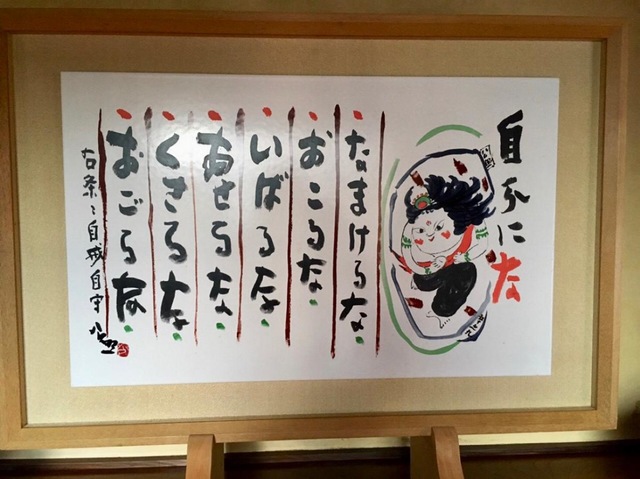 自分にな
なまけるな
おこるな
いばるな
あせるな
くさるな
おごるな
右条〻自戒自守